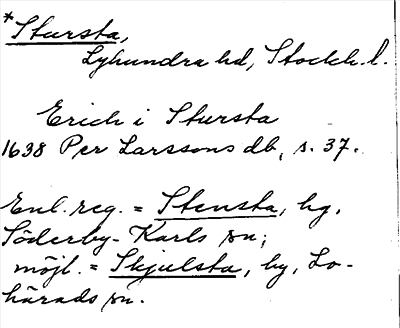 *Stursta,
Lyhundra hd, Stockh. l.
Erich i Stursta
1638 Per Larssons db, s. 37.
Enl. reg. = Stensta, by,
Söderby-Karls sn;
möjl. = Skjulsta, by, Lo-
härads sn.